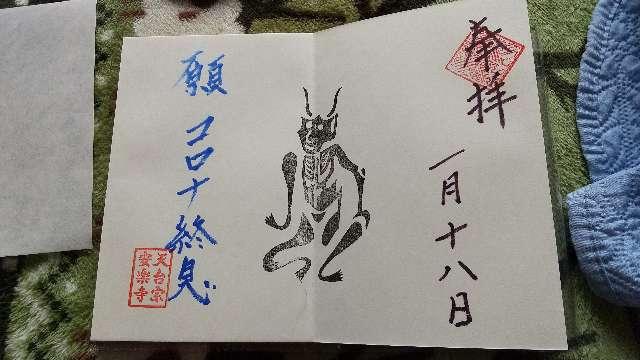 奉拝
一月十八日
願 コロナ終息
天台宗
安楽寺